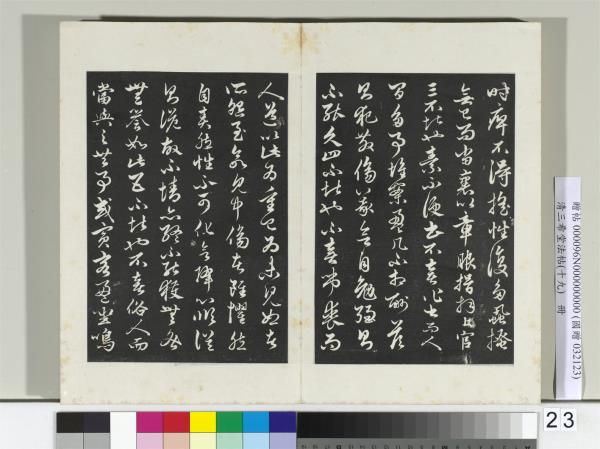 時痺不得搖性復多蝨把
無已而當裹以章服揖拜上官
三不堪也素不便書不喜作書而人
間多事堆案盈几不相酬答
則犯教傷義欲自勉強則
不能久四不堪也不喜弔喪而
人道以此為重已為未見恕者
所怨至欲見中傷者雖懼然
自責然性不可化欲降心順俗
則詭故不情亦終不能獲無咎
無譽如此五不堪也不喜俗人而
當與之共事或賓客盈坐鳴
贈帖 000096N000000000 (國贈 032123)
清三希堂法帖(十九) 冊
23